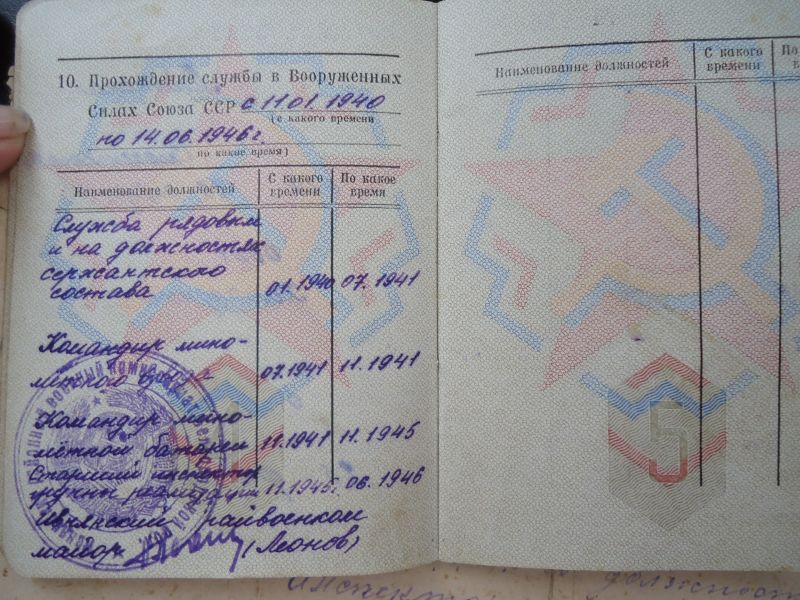 10. Прохождение службы в Вооруженных
Силах Союза ССР с 11 01. 1940
(с какого времени
по 14.06.1946 г.
по какое время)
Наименование должностей
С какого времени
По какое время
Служба рядовым
и на должностях
сержантского
состава 01.1940 07.1941
Командир мино-
мётного 07.1941 11.1941
Командир мино-
мётной батареи 11.1941 11.1945
Старший инспектор
группы реализации 11.1945г. 06.1946
Ивнянский райвоенком
майор (Леонов)
Наименование должностей
С какого времени
По
врем
5